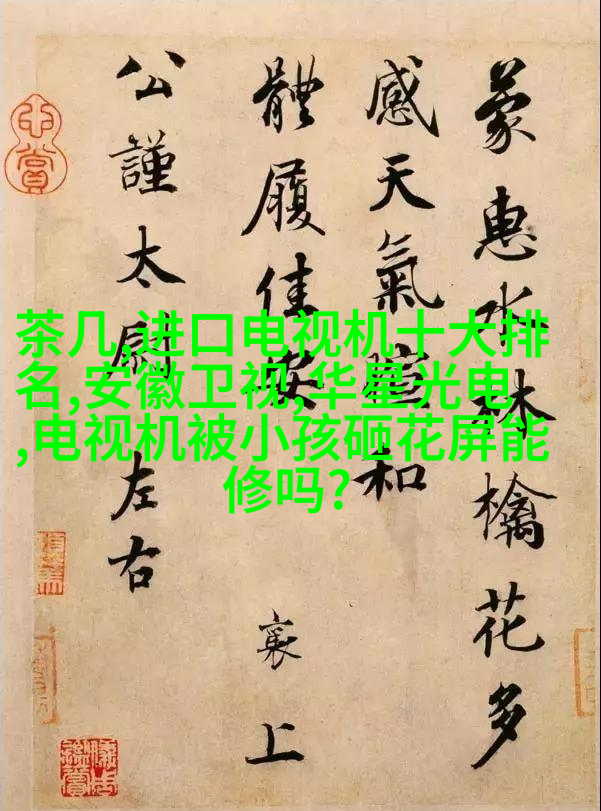 茶几,进口电视机十大排
名,安徽卫视,华星光电
,电视机被小孩砸花屏能
修吗?
蒙惠水林檎花多
感天氣暄和
體履佳安 襄上
公謹太尉左右